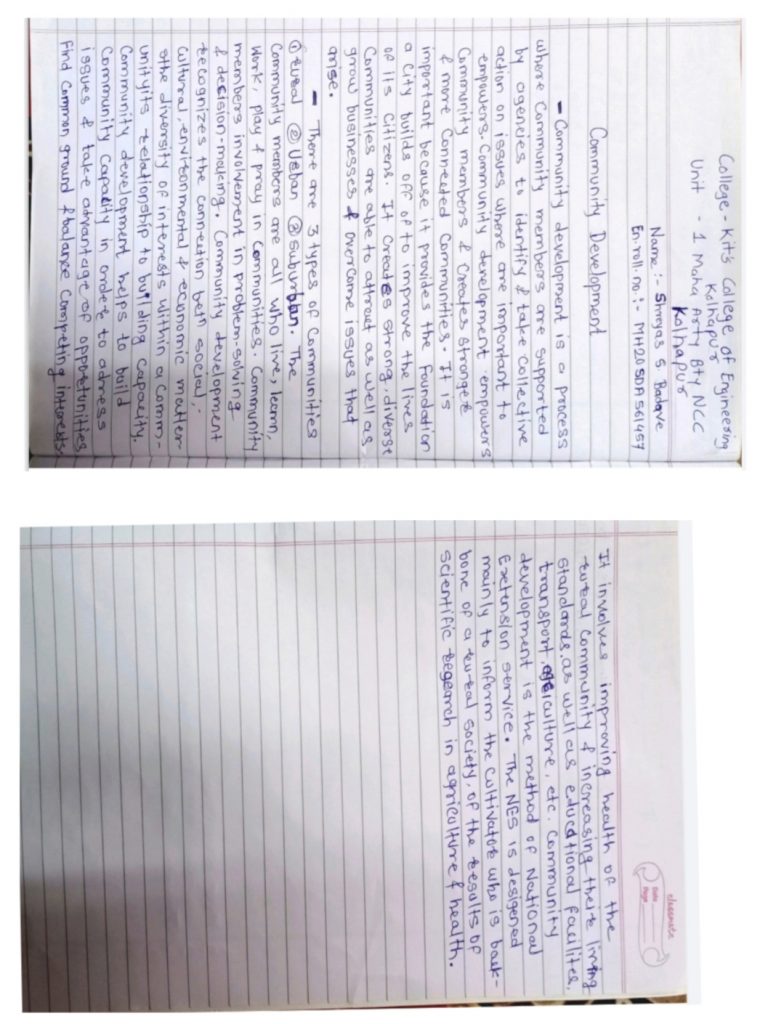 College - Kit's College of Engineering
Kolhapur
Unit - 1 Maha Arty Bty NCC
Kolhapur
Name :- Shreyas S. Badave
En.roll.no :- MH20SDA561457
Community Development
- Community development is a process
where Community members are supported
by agencies to identify & take collective
action on issues where are important to
empowers. Community development empowers
Community members & Creates stronger
& more Connected Communities. It is
important because it provides the Foundation
a city builds off of to improve the lives
of its Citizens. It Creates strong, diverse
Communities are able to attract as well as
grow businesses & overcome issues that
arise.
- There are 3 types of Communities
① rural ② Urban ③ suburban. The
Community members are all who live, learn,
work, play & pray in Communities. Community
members involvement in problem-solving
& decision-making. Community development
recognizes the connection betn social,
cultural, environmental & economic matter-
sthe diversity of interests within a comm-
unityits relationship to building capacity.
Community development helps to build
Community Capacity in order to adress
issues & take advantage of opportunities
Find Common ground & balance Competing interests.
classmate
Date
Page
It involves improving health of the
rural Community & increasing there living
standards, as well as educational facilites,
transport, agriculture, etc. Community
development is the method of National
Extension service. The NES is desigened
mainly to inform the cultivator who is back-
bone of a rural society, of the results of
scientific research in agriculture & health.